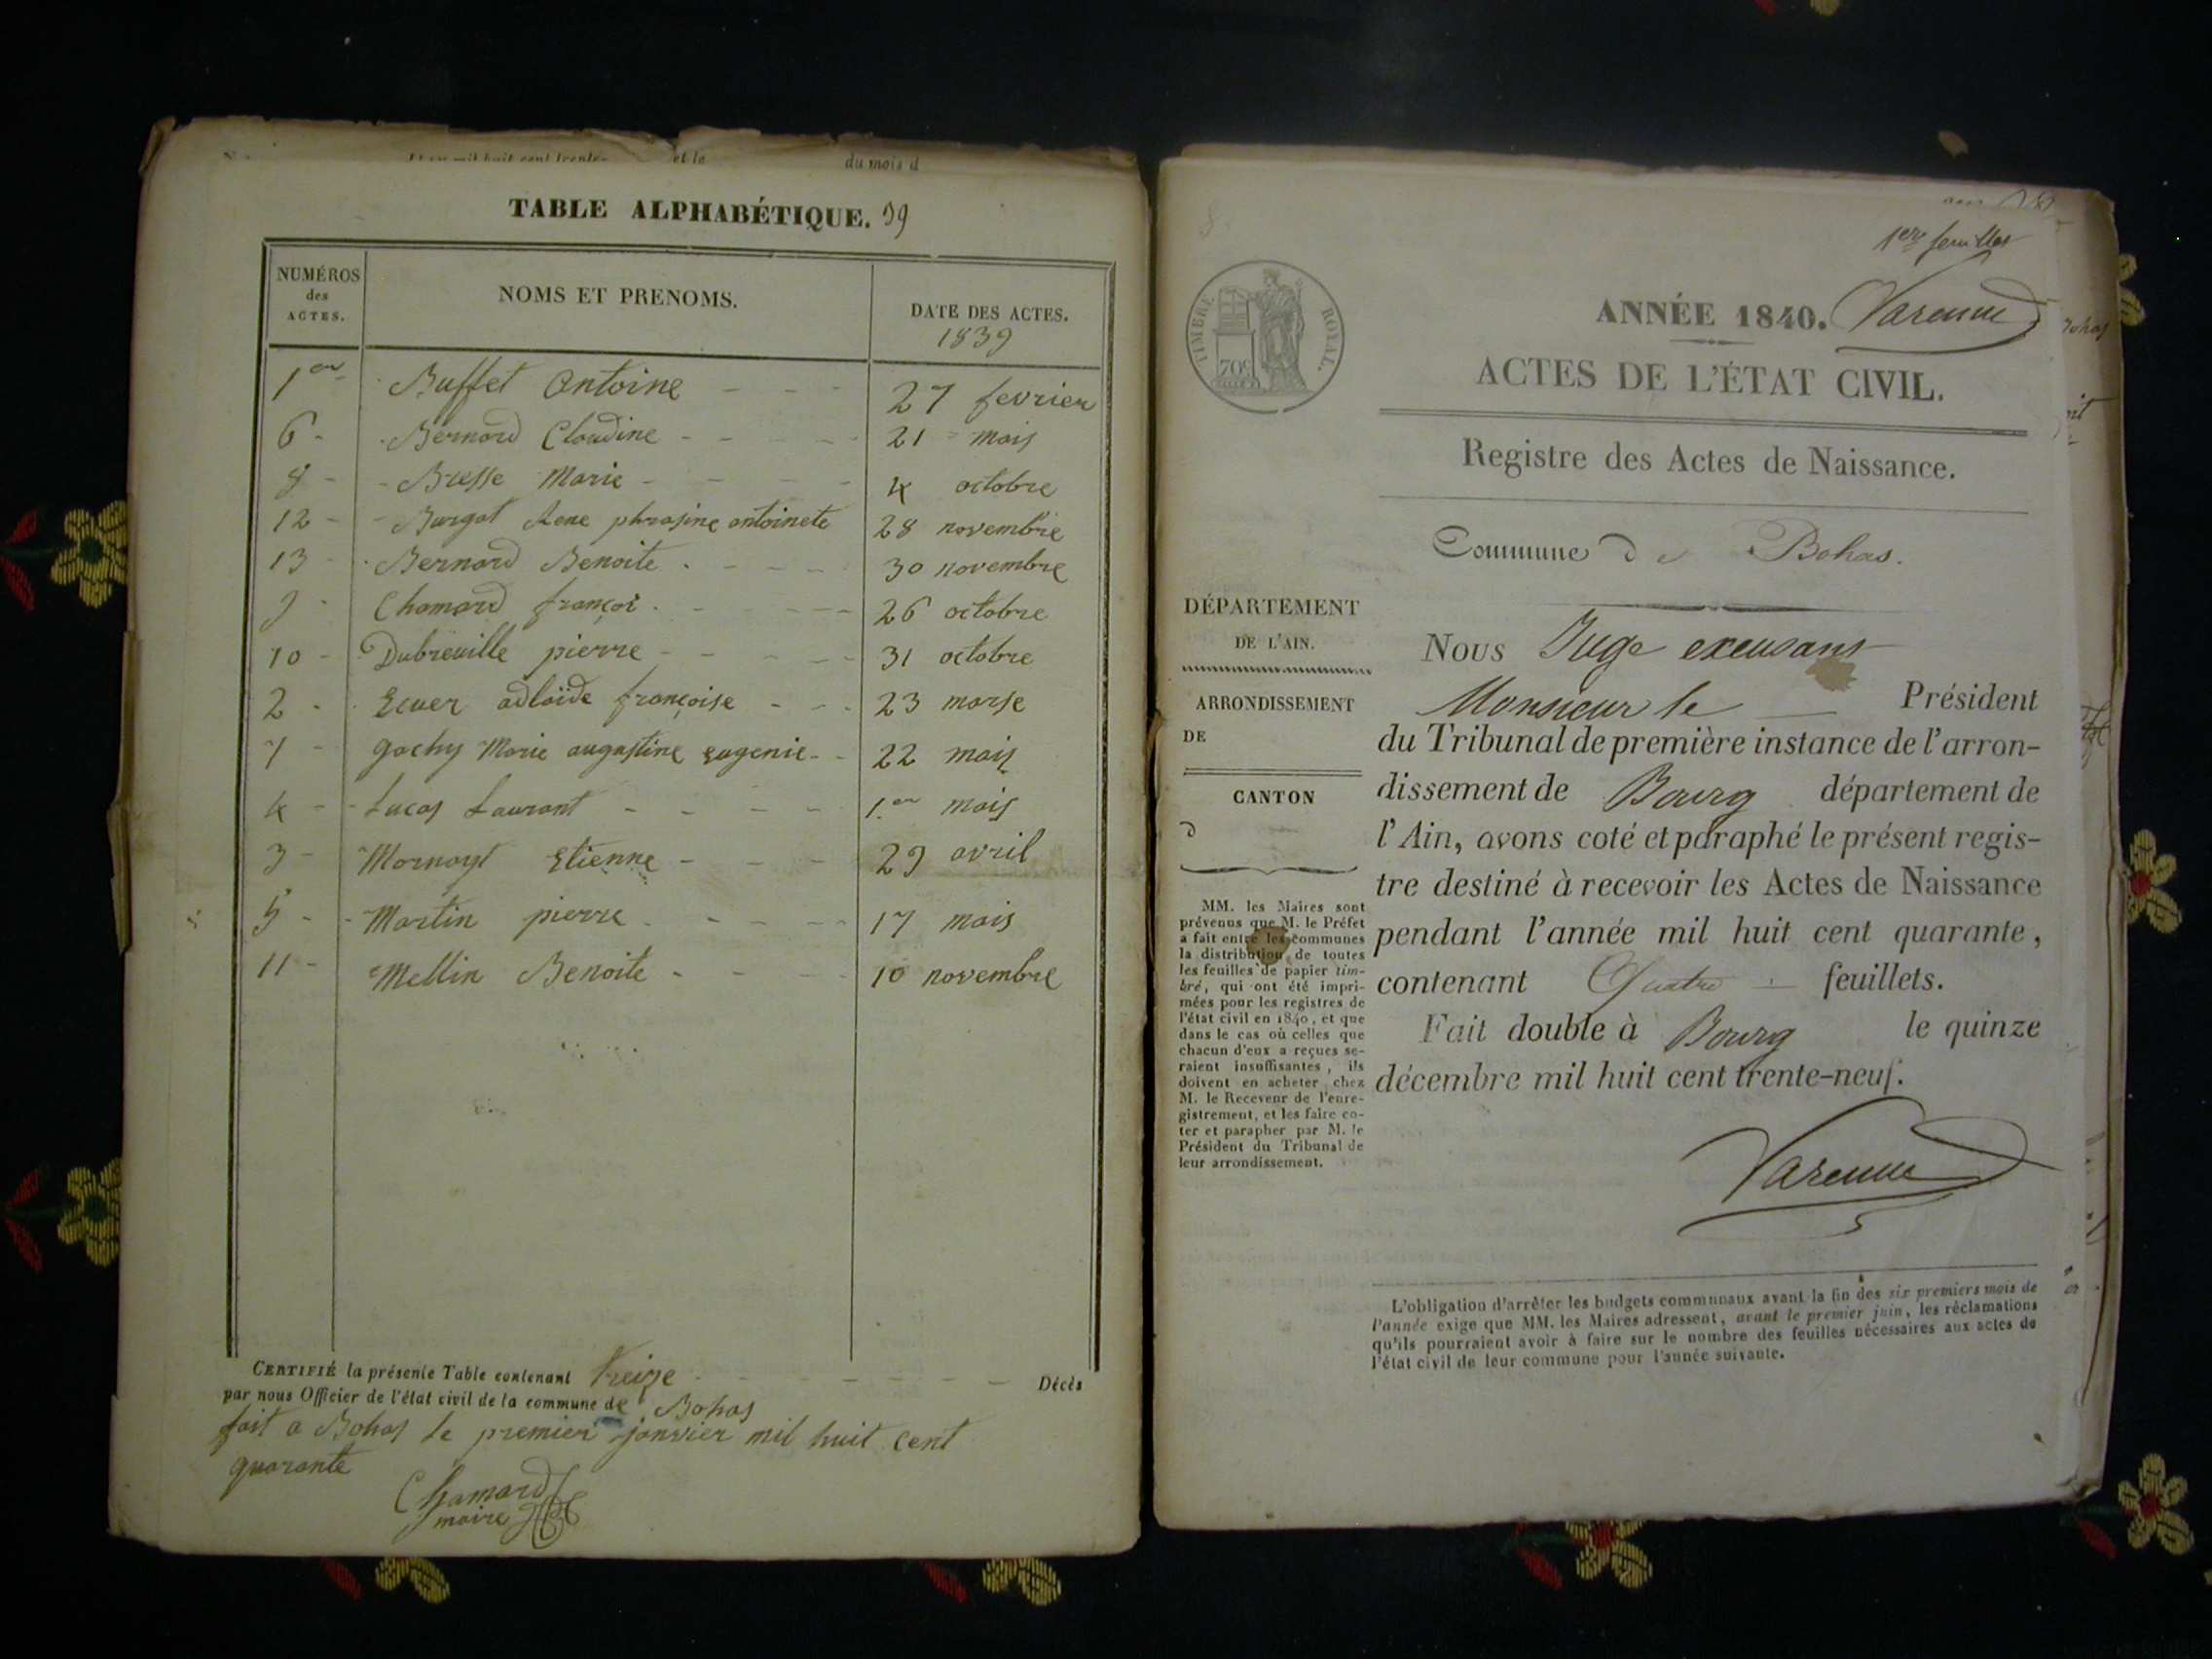 et le du mois d
TABLE ALPHABÉTIQUE. 39
NUMÉROS des ACTES. NOMS ET PRENOMS. DATE DES ACTES. 1839
1er Buffet Antoine 27 fevrier
6 Bernard Claudine 21 mais
8 Bresse Marie 4 octobre
12 Burgat Rene phrasine antoinete 28 novembre
13 Bernard Benoite 30 novembre
9 Chamard françoi 26 octobre
10 Dubreuille pierre 31 octobre
2 Ecuer adlaïde françoise 23 marse
7 gachy Marie augustine eugenie 22 mais
4 Lucas Laurant 1.er mais
3 Mornayt Etienne 29 avril
5 Martin pierre 17 mais
11 Mellin Benoite 10 novembre
CERTIFIÉ la présente Table contenant treize Décès
par nous Officier de l'état civil de la commune de Bohas
fait a Bohas le premier janvier mil huit cent
quarante
Chamard
maire
1er feuillet
TIMBRE ROYAL.
70c
ANNÉE 1840. Varenne
ACTES DE L'ÉTAT CIVIL.
Registre des Actes de Naissance.
Commune de Bohas.
DÉPARTEMENT
DE L'AIN.
ARRONDISSEMENT
DE
CANTON
D
MM. les Maires sont
prévenus que M. le Préfet
a fait entre les communes
la distribution de toutes
les feuilles de papier tim-
bré, qui ont été impri-
mées pour les registres de
l'état civil en 1840, et que
dans le cas où celles que
chacun d'eux a reçues se-
raient insuffisantes, ils
doivent en acheter chez
M. le Receveur de l'enre-
gistrement, et les faire co-
ter et parapher par M. le
Président du Tribunal de
leur arrondissement.
Nous Juge excusant
Monsieur le Président
du Tribunal de première instance de l'arron-
dissement de Bourg département de
l'Ain, avons coté et paraphé le présent regis-
tre destiné à recevoir les Actes de Naissance
pendant l'année mil huit cent quarante,
contenant Quatre feuillets.
Fait double à Bourg le quinze
décembre mil huit cent trente-neuf.
Varenne
L'obligation d'arrêter les budgets communaux avant la fin des six premiers mois de
l'année exige que MM. les Maires adressent, avant le premier juin, les réclamations
qu'ils pourraient avoir à faire sur le nombre des feuilles nécessaires aux actes de
l'état civil de leur commune pour l'année suivante.